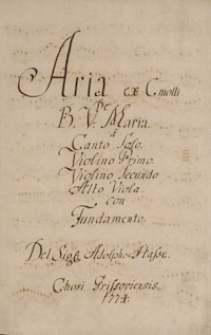 Aria ex C moll
De
B. V. Maria.
à
Canto Solo.
Violino Primo.
Violino Secundo
Alto Viola.
con
Fundamento.
Del Sigre Adolpho Hasse.
Chori Grissoviensis.
1774.